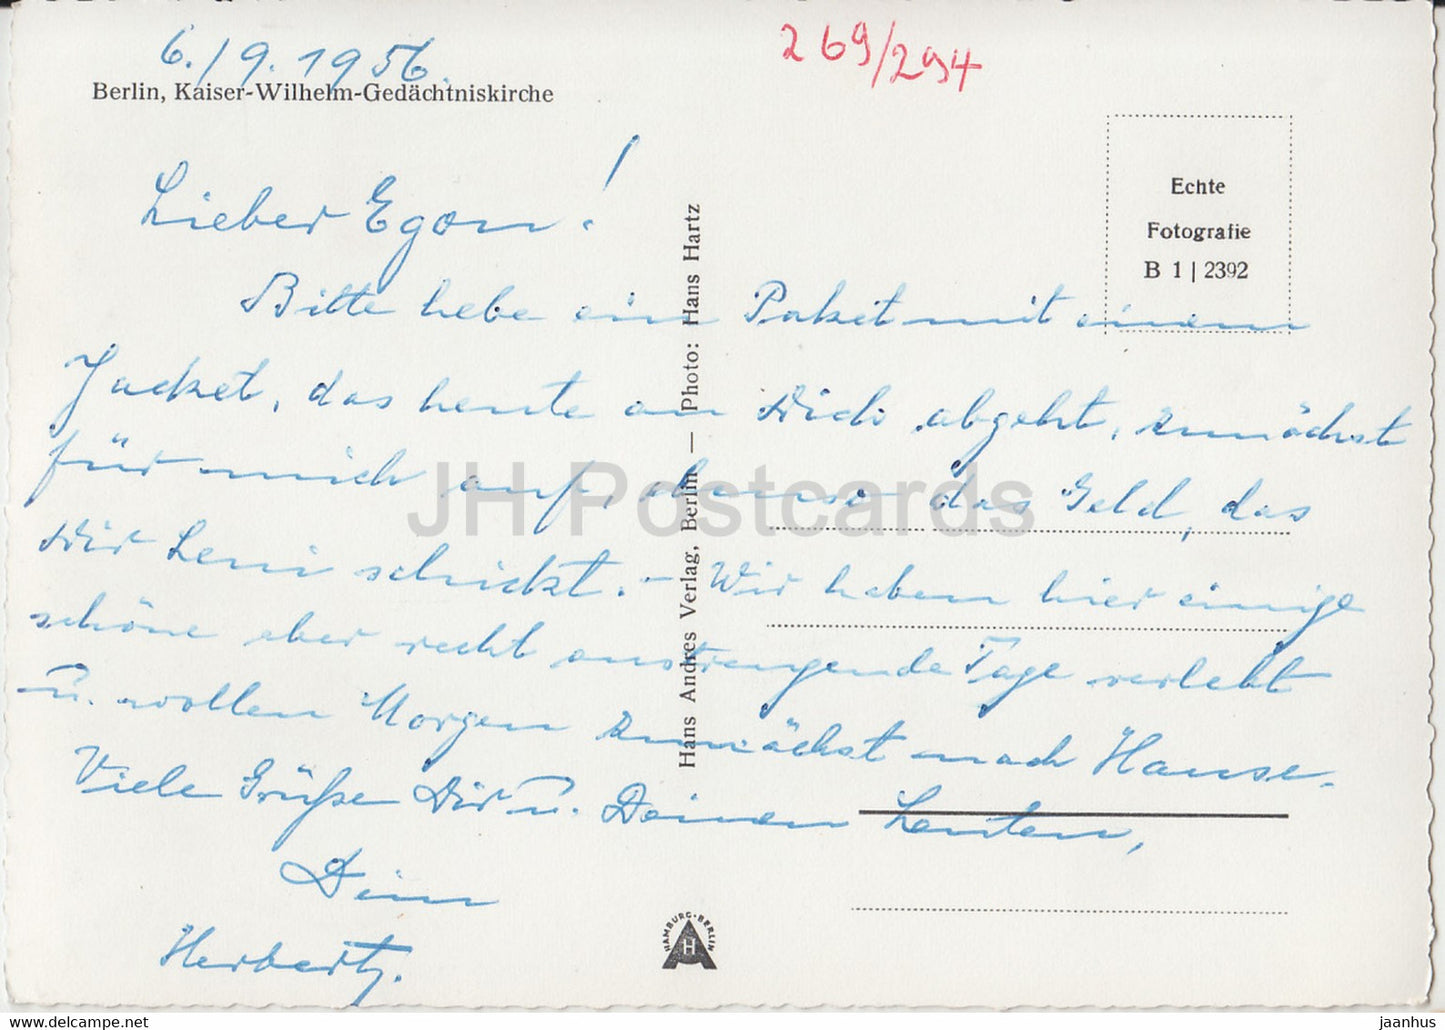 6./9.1956.
269/294
Berlin, Kaiser-Wilhelm-Gedächtniskirche
Lieber Egon!
Bitte hebe ein Paket mit einem
Jacket, das heute an Dich abgeht, zunächst
für mich auf, das Geld, das
Dir Leni schickt. – Wir haben hier einige
schöne aber recht anstrengende Tage verlebt
u. wollen Morgen zunächst nach Hause.
Viele Grüße Dir u. Deinen Leuten,
Dein
Herbert.
Echte
Fotografie
B 1 | 2392
Hans Andres Verlag, Berlin — Photo: Hans Hartz
HAMBURG-BERLIN
H
JH Postcards
www.delcampe.net
jaanhus